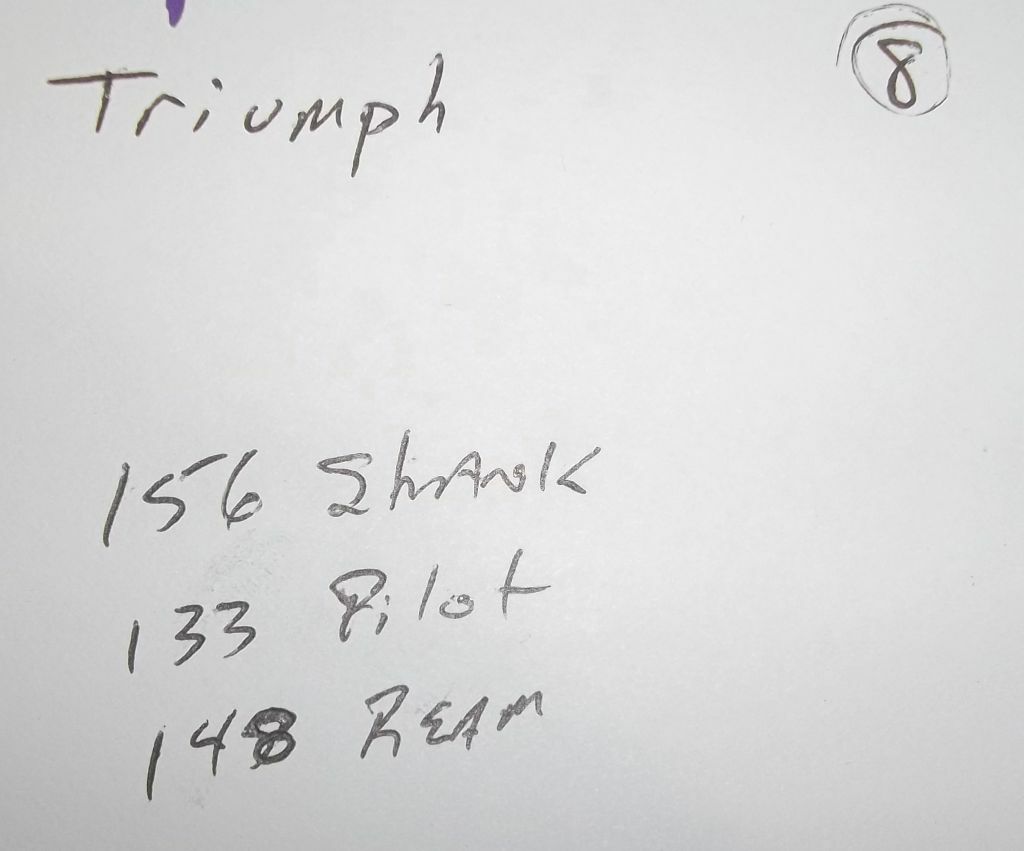 Triumph
8
156 Shank
133 Pilot
148 REAM